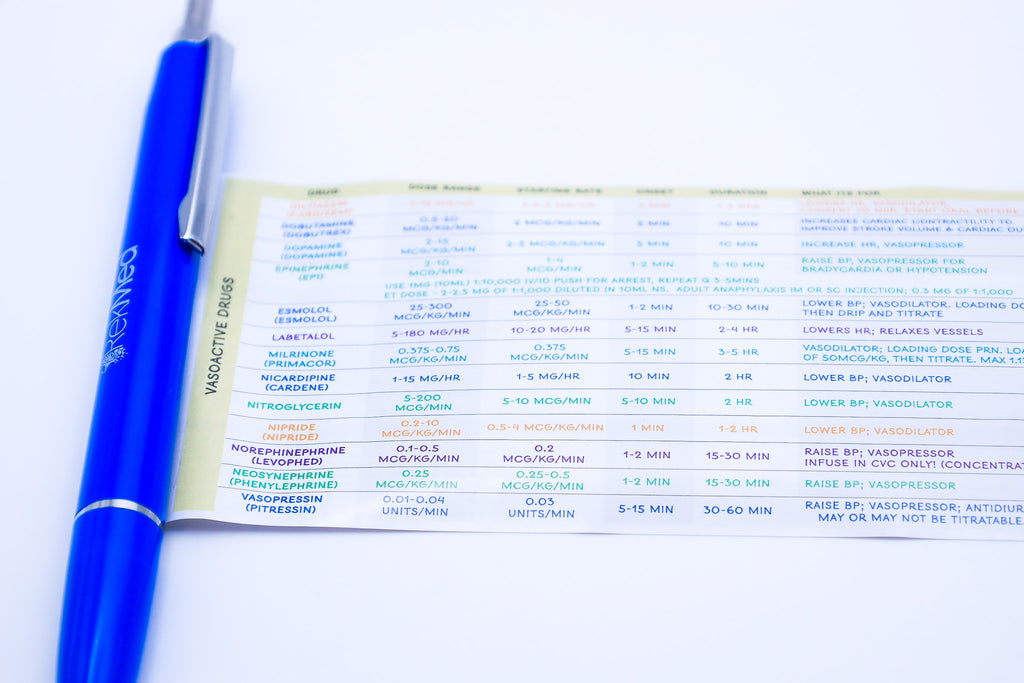 RekMed
VASOACTIVE DRUGS
DRUG DOSE RANGE STARTING RATE ONSET DURATION WHAT ITS FOR
DILTIAZEM
(CARDIZEM)
LOWERS HR, VASODILATOR,
START ORAL BEFORE
DOBUTAMINE
(DOBUTREX)
0.5-20
MCG/KG/MIN
2 MCG/KG/MIN 2 MIN 10 MIN
INCREASES CARDIAC CONTRACTILITY TO
IMPROVE STROKE VOLUME & CARDIAC OU
DOPAMINE
(DOPAMINE)
2-15
MCG/KG/MIN
2-5 MCG/KG/MIN 5 MIN 10 MIN INCREASE HR, VASOPRESSOR
EPINEPHRINE
(EPI)
2-10
MCG/MIN
1-4
MCG/MIN
1-2 MIN 5-10 MIN
RAISE BP, VASOPRESSOR FOR
BRADYCARDIA OR HYPOTENSION
USE 1MG (10ML) 1:10,000 IV/IO PUSH FOR ARREST, REPEAT Q 3-5MINS
ET DOSE - 2-2.5 MG OF 1:1,000 DILUTED IN 10ML NS. ADULT ANAPHYLAXIS IM OR SC INJECTION; 0.3 MG OF 1:1,000
ESMOLOL
(ESMOLOL)
25-300
MCG/KG/MIN
25-50
MCG/KG/MIN
1-2 MIN 10-30 MIN
LOWER BP; VASODILATOR. LOADING DO
THEN DRIP AND TITRATE
LABETALOL 5-180 MG/HR 10-20 MG/HR 5-15 MIN 2-4 HR LOWERS HR; RELAXES VESSELS
MILRINONE
(PRIMACOR)
0.375-0.75
MCG/KG/MIN
0.375
MCG/KG/MIN
5-15 MIN 3-5 HR
VASODILATOR; LOADING DOSE PRN. LOA
OF 50MCG/KG, THEN TITRATE. MAX 1.13
NICARDIPINE
(CARDENE)
1-15 MG/HR 1-5 MG/HR 10 MIN 2 HR LOWER BP; VASODILATOR
NITROGLYCERIN
5-200
MCG/MIN
5-10 MCG/MIN 5-10 MIN 2 HR LOWER BP; VASODILATOR
NIPRIDE
(NIPRIDE)
0.2-10
MCG/KG/MIN
0.5-4 MCG/KG/MIN 1 MIN 1-2 HR LOWER BP; VASODILATOR
NOREPHINEPHRINE
(LEVOPHED)
0.1-0.5
MCG/KG/MIN
0.2
MCG/KG/MIN
1-2 MIN 15-30 MIN
RAISE BP; VASOPRESSOR
INFUSE IN CVC ONLY! (CONCENTRAT
NEOSYNEPHRINE
(PHENYLEPHRINE)
0.25
MCG/KG/MIN
0.25-0.5
MCG/KG/MIN
1-2 MIN 15-30 MIN RAISE BP; VASOPRESSOR
VASOPRESSIN
(PITRESSIN)
0.01-0.04
UNITS/MIN
0.03
UNITS/MIN
5-15 MIN 30-60 MIN
RAISE BP; VASOPRESSOR; ANTIDIUR
MAY OR MAY NOT BE TITRATABLE